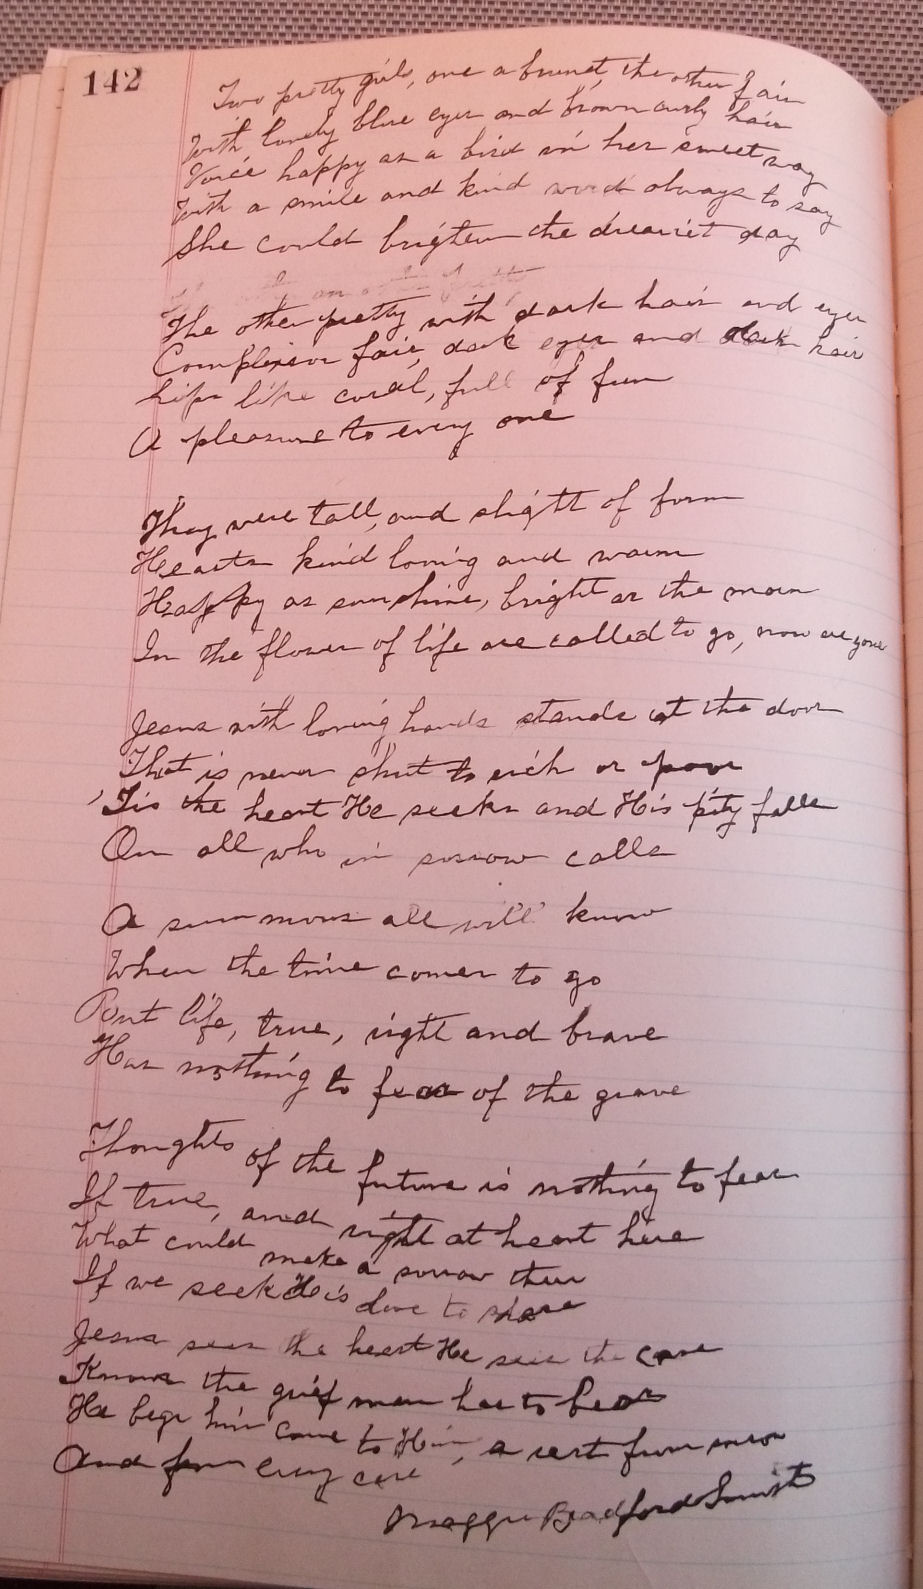 142
Two pretty girls, one a brunet the other fair
With lovely blue eyes and brown curly hair
Voice happy as a bird in her sweet way
With a smile and kind word always to say
She could brigten the dreariest day
The other pretty with dark hair and eyes
Complexion fair, dark eyes and dark hair
Lips like coral, full of fun
A pleasure to every one
They were tall, and slightt of form
Hearts kind loving and warm
Happy as sunshine, bright as the morn
In the flower of life are called to go, now are gone
Jesus with loving hands stands at the door
That is never shut to rich or poor
'Tis the heart He seeks and His pity falls
On all who in sorrow calls
A summons all will know
When the time comes to go
But life, true, right and brave
Has nothing to fear of the grave
Thoughts of the future is nothing to fear
If true, and right at heart here
What could make a sorrow there
If we seek His love to share
Jesus sees the heart He sees the care
Knows the grief man has to bear
He begs him come to Him, a rest from sorrow
And from every care
Maggie Bradford Smith